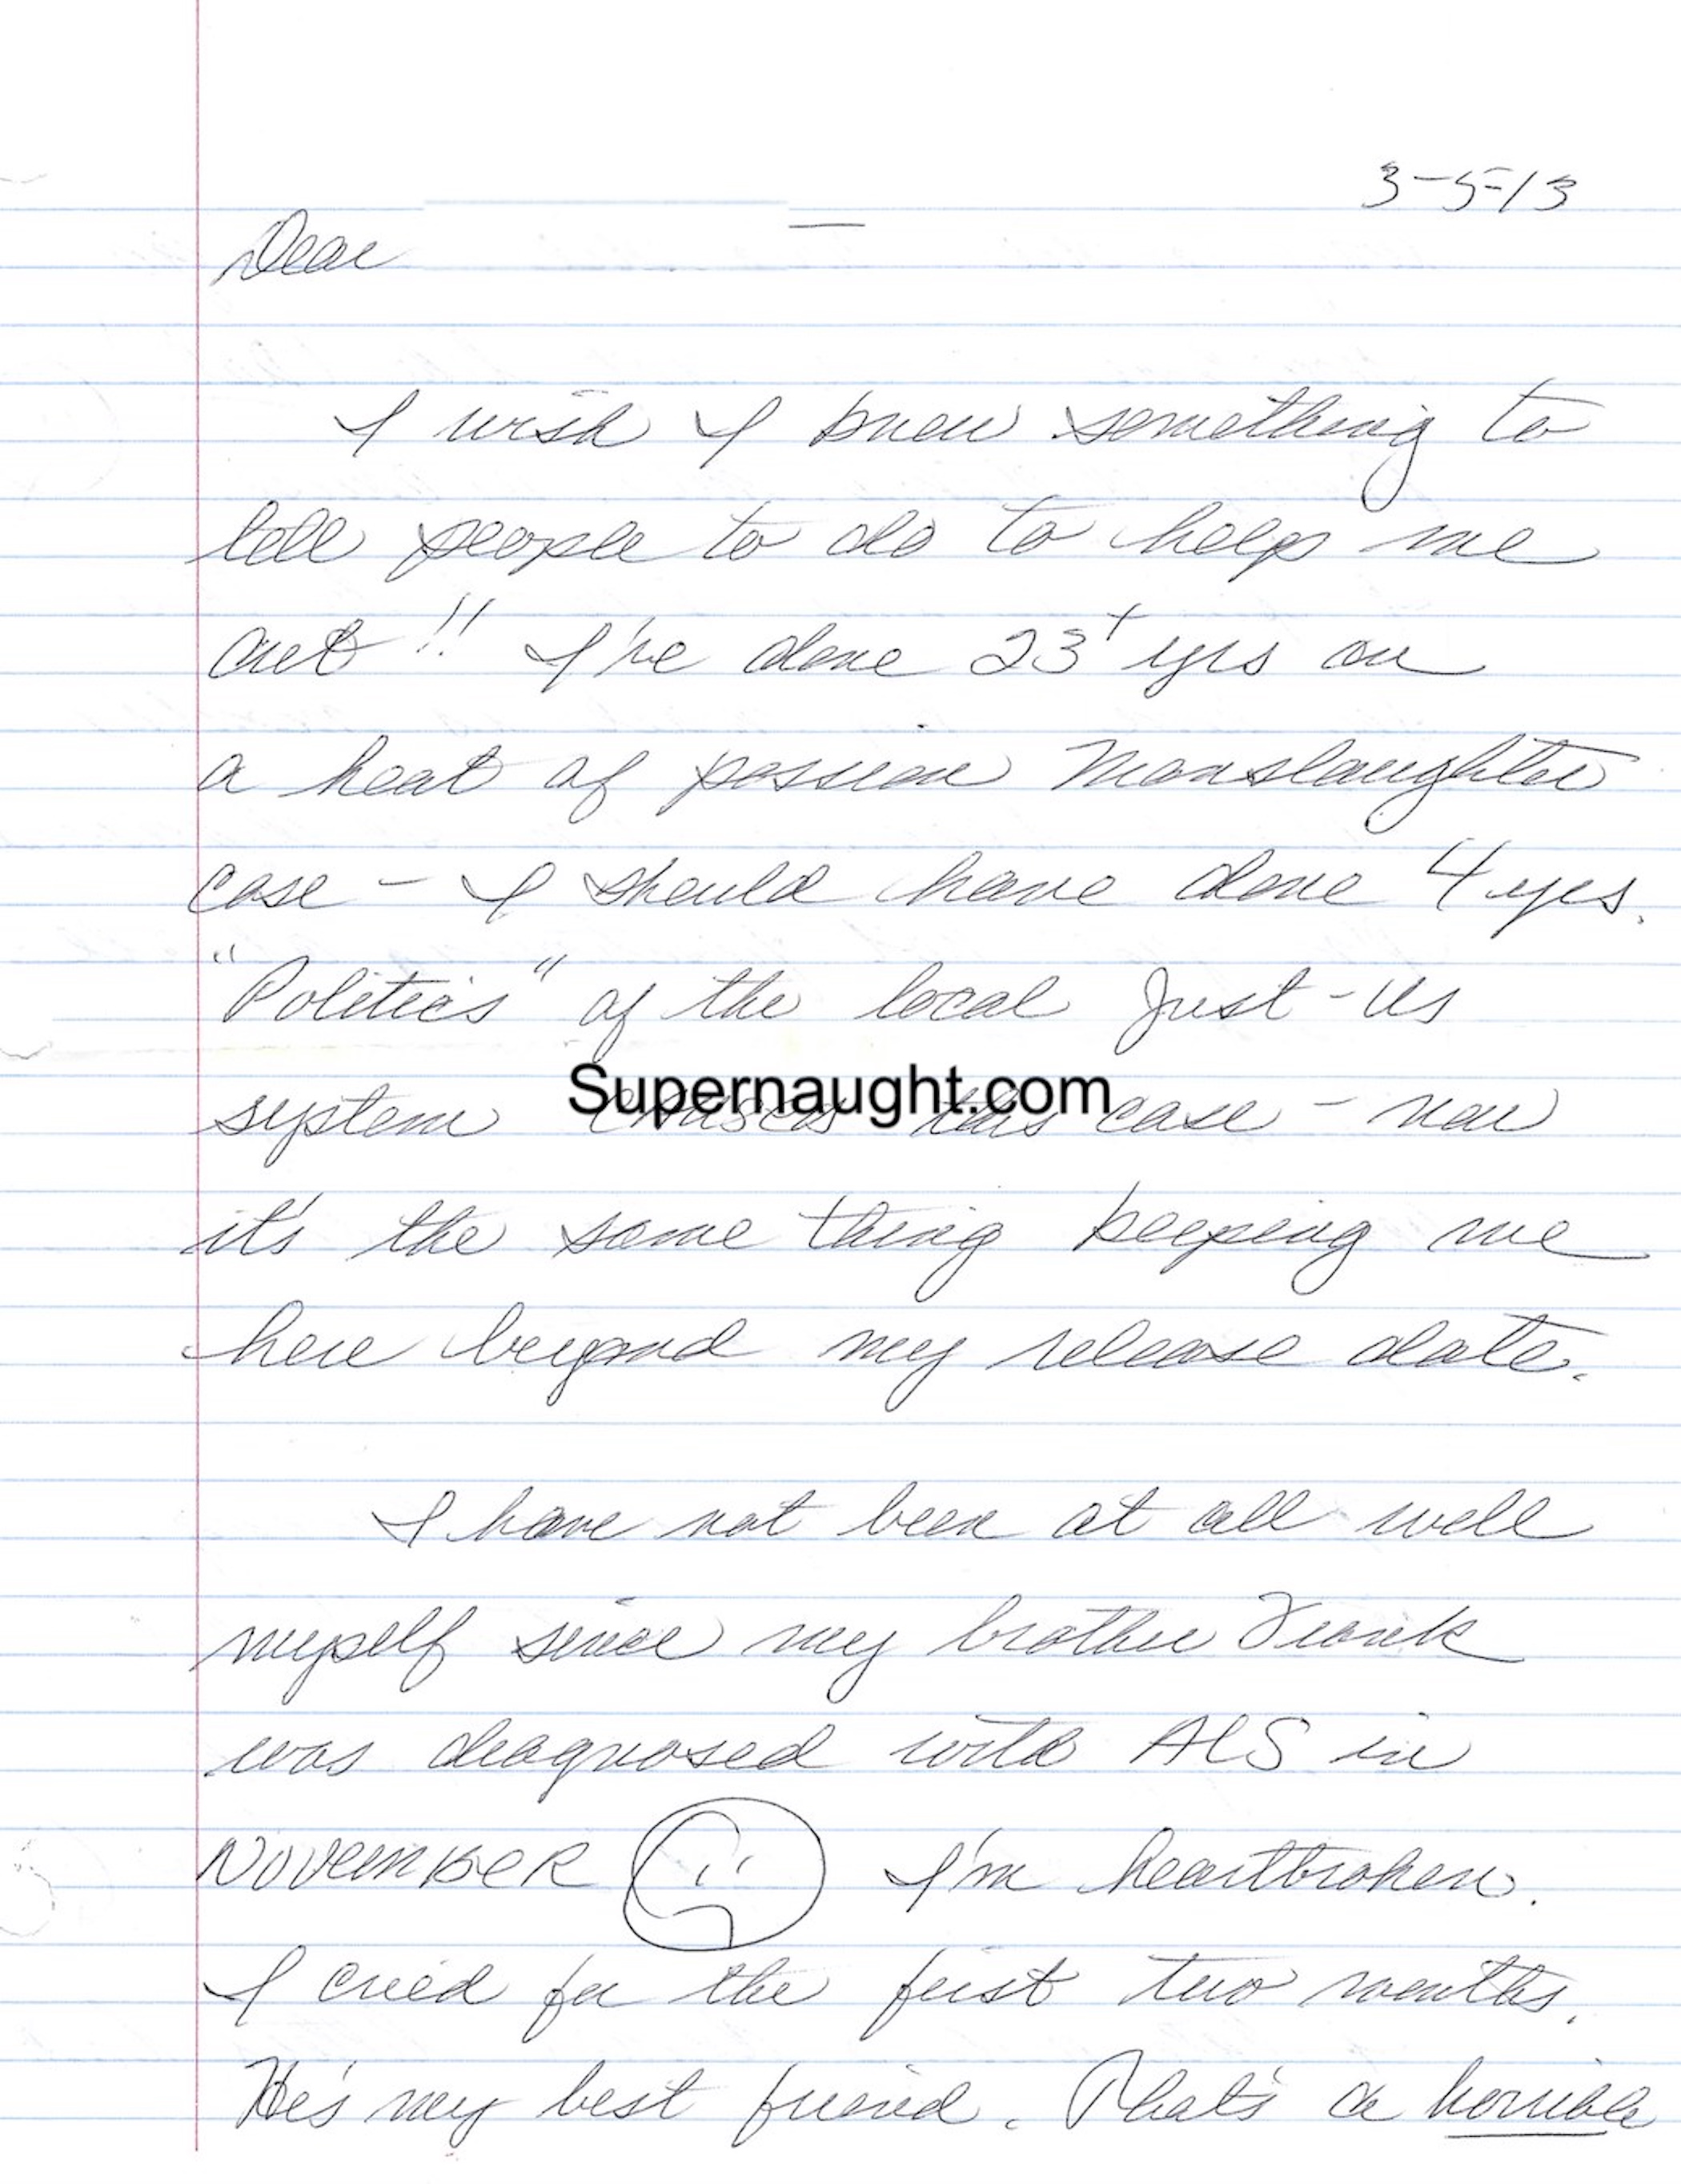 3-5-13
Dear
I wish I knew something to
tell people to do to help me
out!! I've done 23+ yrs on
a heat of passion Manslaughter
case - I should have done 4 yrs.
"Politics" of the local Just-Us
Supernaught.com
system this case - now
it's the same thing keeping me
here beyond my release date.
I have not been at all well
myself since my brother Frank
was diagnosed with ALS in
NOVEMBER I'm heartbroken.
I cried for the first two months.
He's my best friend. That's a horrible